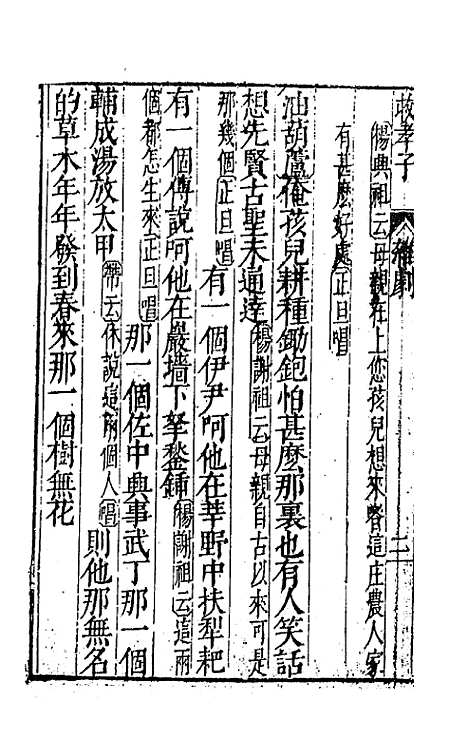 救孝子 雜劇 二
楊興祖云母親在上您孩兒想來喒這庄農人家
有甚麼好處正旦唱
油葫蘆俺孩兒耕種鋤鉋怕甚麼那裏也有人笑話
想先賢古聖未通達楊謝祖云母親自古以來可是
那幾個正旦唱有一個伊尹呵他在莘野中扶犁耙
有一個傅說呵他在巖墻下拏鍫鍤楊謝祖云這兩
個都怎生來正旦唱那一個佐中興事武丁那一個
輔成湯放太甲帶云休說這兩個人唱則他那無名
的草木年年發到春來那一個樹無花